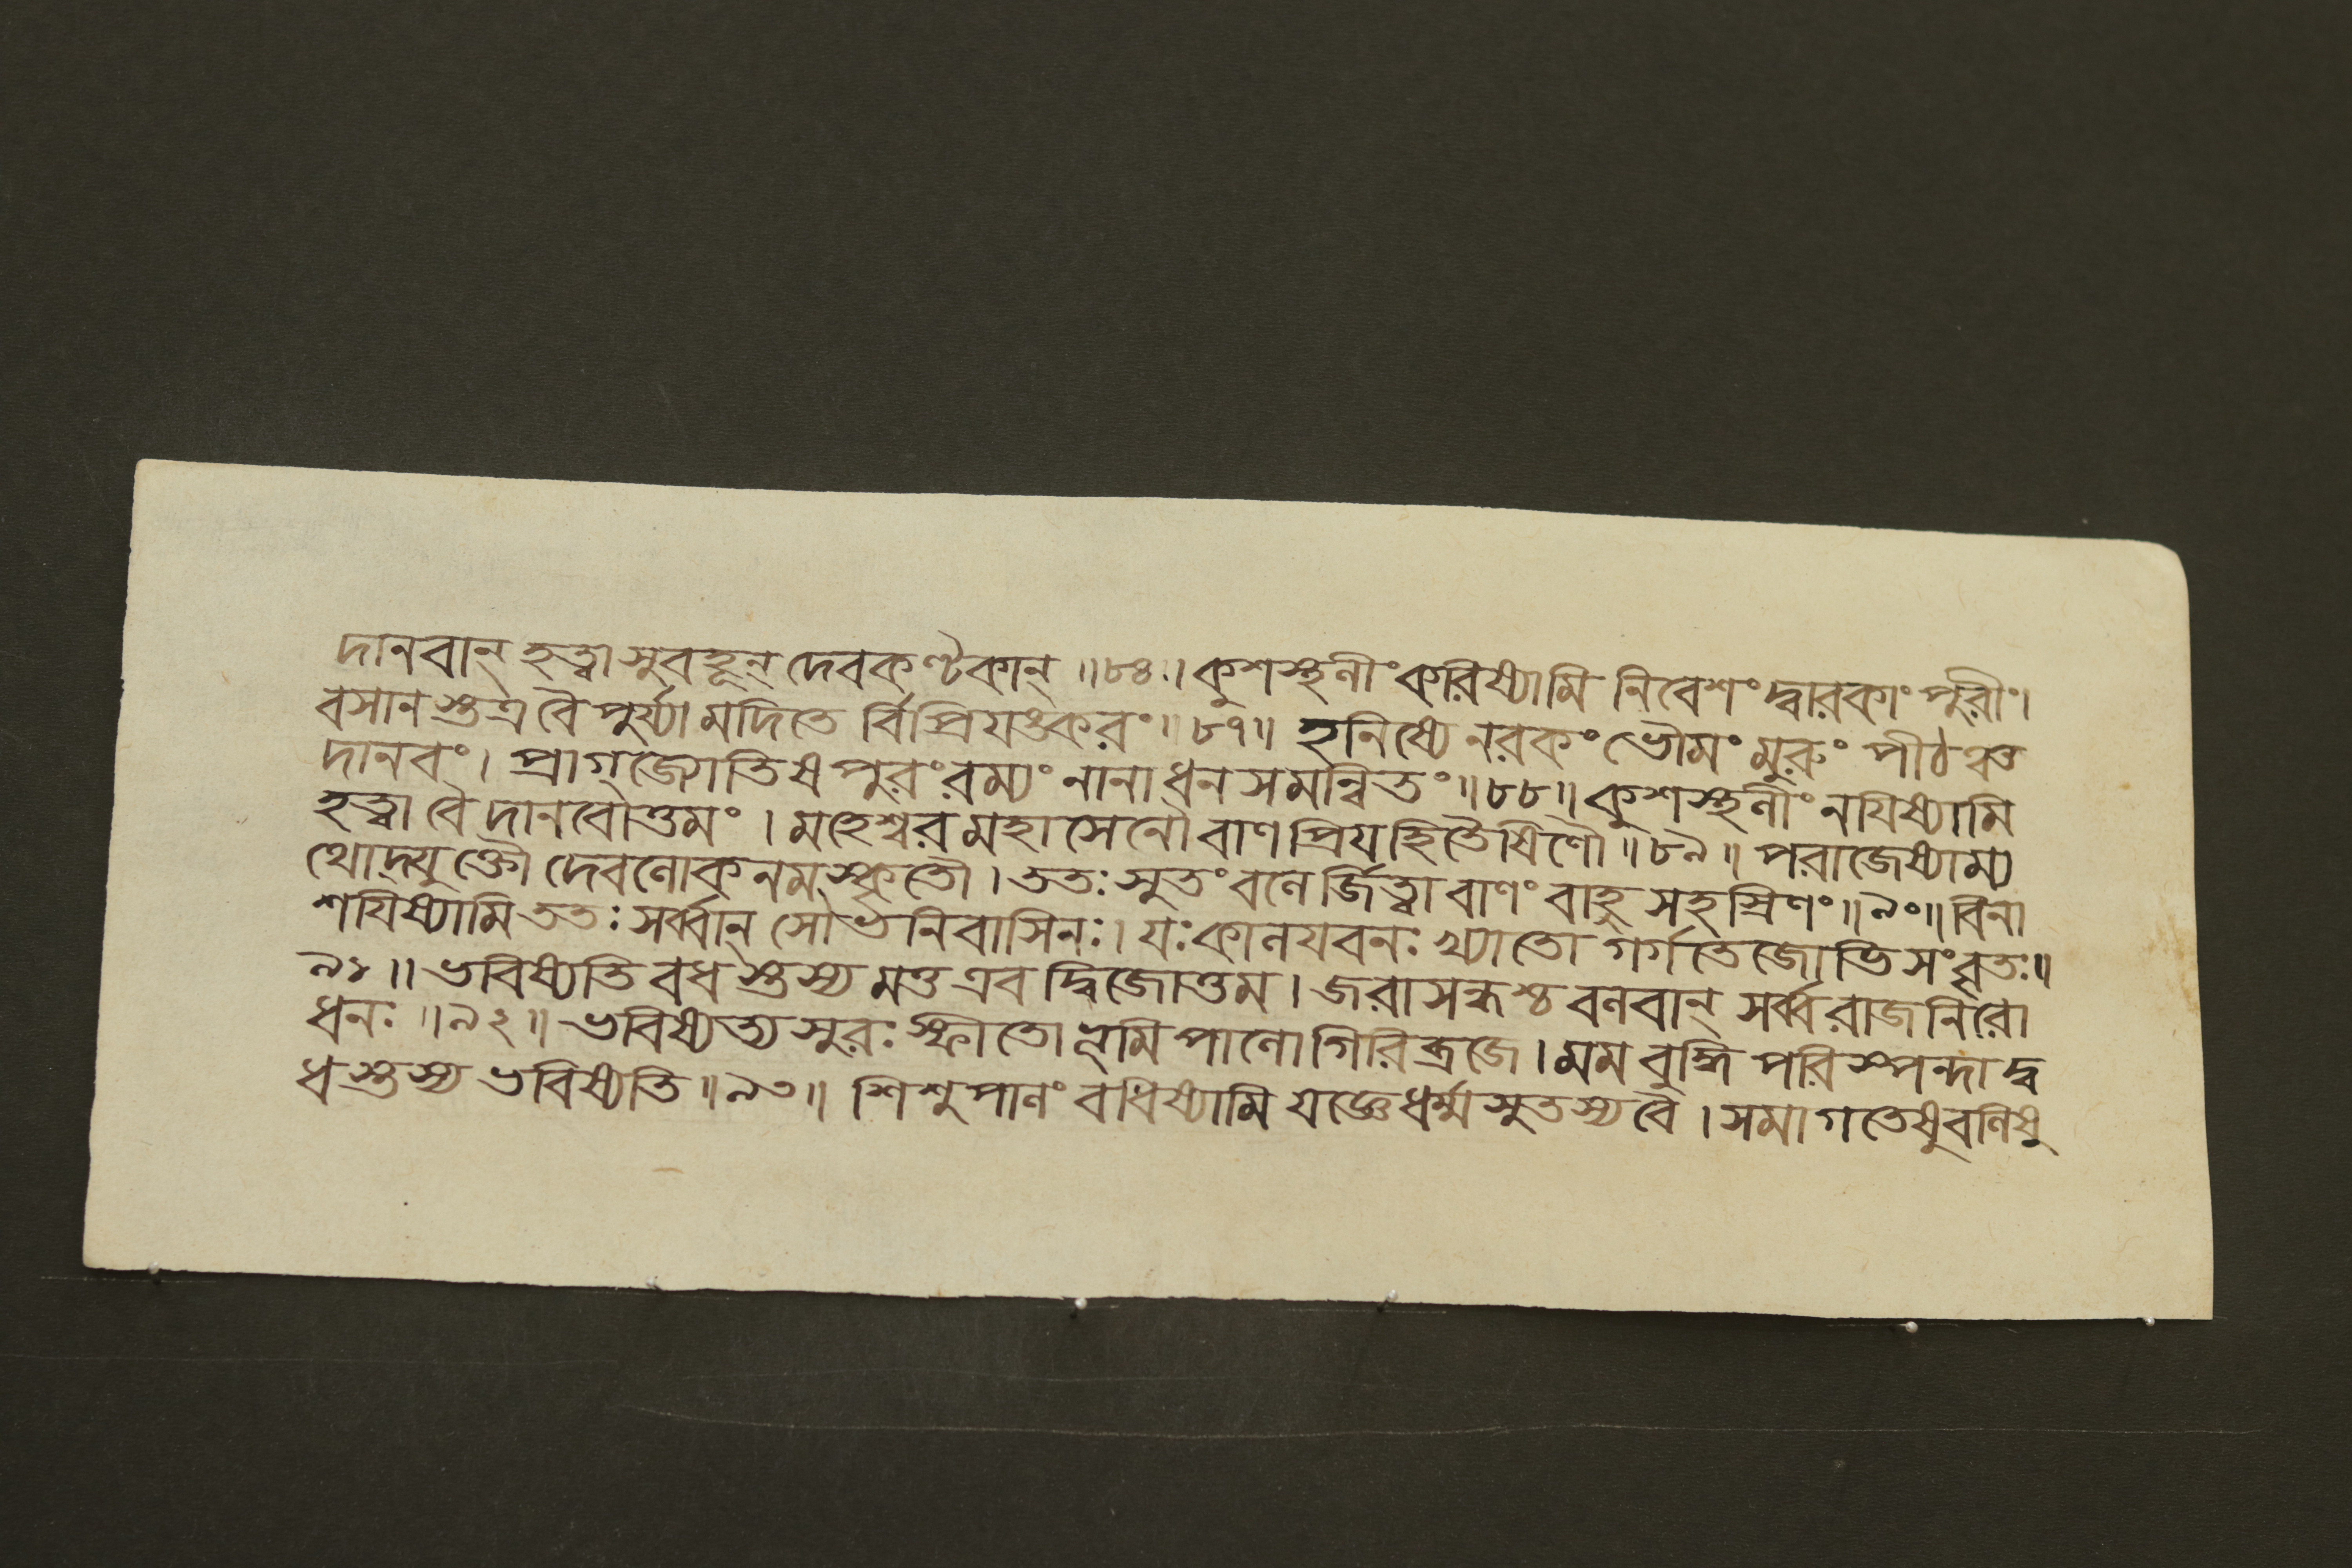 দানবান্ হত্বা সুবহূন্ দেবকণ্টকান্ ॥৮৪॥ কুশস্থলীং করিষ্যামি নিবেশং দ্বারকাং পুরীং।
বসানস্তত্র বৈ পুর্য্যামদিতে র্বিপ্রিয়ঙ্করং॥৮৭॥ হনিষ্যে নরকং ভৌমং মুরুং পীঠঞ্চ
দানবং। প্রাগ্জ্যোতিষপুরং রম্যং নানাধনসমন্বিতং॥৮৮॥ কুশস্থলীং নয়িষ্যামি
হত্বা বৈ দানবোত্তমং । মহেশ্বরমহাসেনৌ বাণপ্রিয়হিতৈষিণৌ॥৮৯॥ পরাজেষ্যাম্য
থোদ্যুক্তৌ দেবলোকনমস্কৃতৌ। ততঃ সুতং বলে র্জিত্বা বাণং বাহুসহস্রিণং॥৯০॥ বিনা
শয়িষ্যামি ততঃ সর্ব্বান্ সৌভনিবাসিনঃ। যঃ কালযবনঃ খ্যাতো গর্গতেজোভিসংবৃতঃ॥
৯১॥ ভবিষ্যতি বধস্তস্য মত্ত এব দ্বিজোত্তম। জরাসন্ধশ্চ বলবান্ সর্ব্বরাজনিরো
ধনঃ ॥৯২॥ ভবিষ্যত্যসুরঃ স্ফীতো ভূমিপালো গিরিব্রজে। মম বুদ্ধিপরিস্পন্দাদ্ব
ধস্তস্য ভবিষ্যতি॥৯৩॥ শিশুপালং বধিষ্যামি যজ্ঞে ধর্ম্মসুতস্য বৈ। সমাগতেষু বলিষু